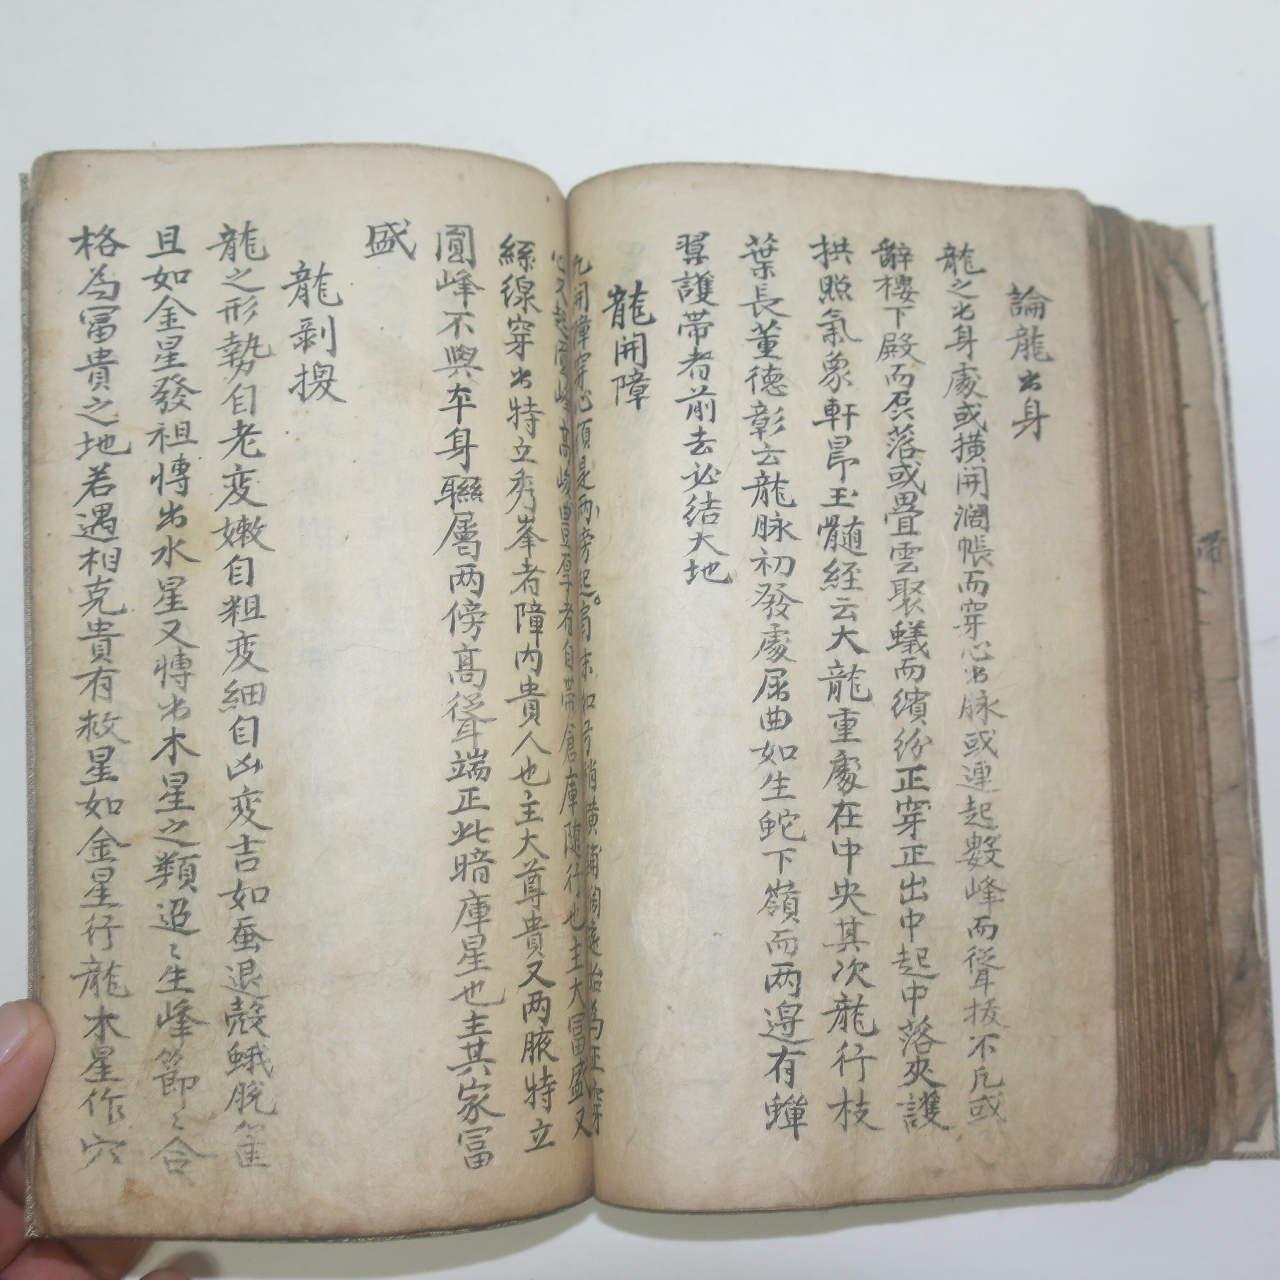 論龍出身
龍之出身處或橫開濶帳而穿心出脉或連起數峰而聳拔不凡或
辭樓下殿而層落或疊雲聚蟻而繽紛正穿正出中起中落夾護
拱照氣象軒昂玉髓經云大龍重處在中央其次龍行枝
葉長董德彰云龍脉初發處屈曲如生蛇下嶺而两邉有蟬
翼護帶者前去必結大地
龍開障
凡開障穿心須是两傍起肩
高峻豊厚者自帶倉庫隨行也主大富盛又
絲線穿出特立秀峯者障內貴人也主大尊貴又两腋特立
圓峰不與卒身聯屬两傍高聳端正此暗庫星也主其家富
盛
龍剥換
龍之形勢自老变嫩自粗变細自凶变吉如蚕退殼蛾脫筐
且如金星發祖轉出水星又轉出木星之類迢〻生峰節〻合
格為冨貴之地若遇相克貴有救星如金星行龍木星作穴
帶